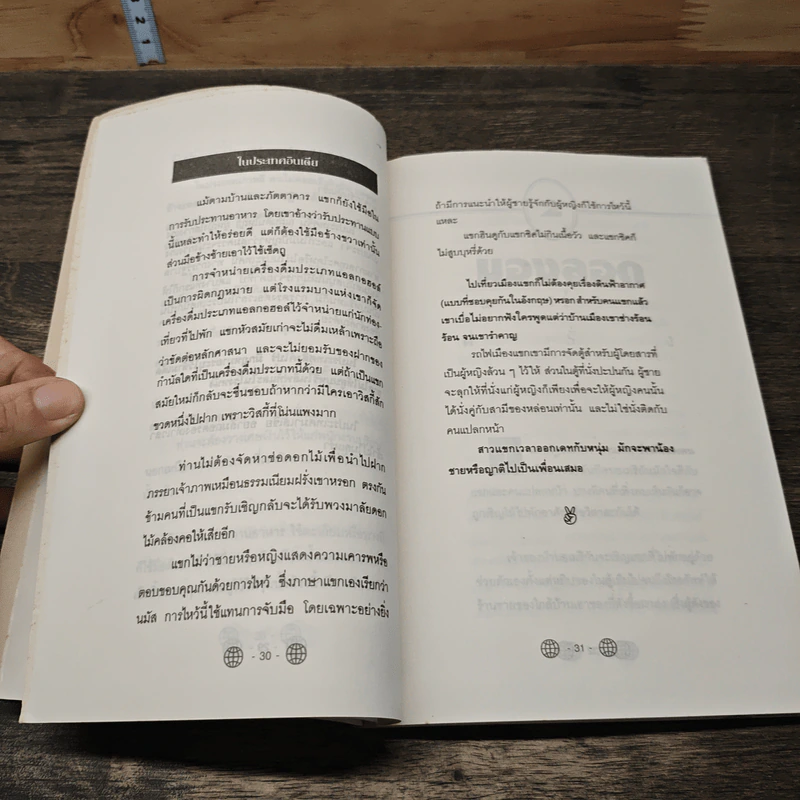 ในประเทศอินเดีย
แม้ตามบ้านและภัตตาคาร แขกก็ยังใช้มือใน
การรับประทานอาหาร โดยเขาอ้างว่ารับประทานแบบ
นี้แหละทำให้อร่อยดี แต่ก็ต้องใช้มือข้างขวาเท่านั้น
ส่วนมือข้างซ้ายเอาไว้ใช้เช็ดถู
การจำหน่ายเครื่องดื่มประเภทแอลกอฮอล์
เป็นการผิดกฎหมาย แต่โรงแรมบางแห่งเขาก็จัด
เครื่องดื่มประเภทแอลกอฮอล์ไว้จำหน่ายแก่นักท่อง-
เที่ยวที่ไปพัก แขกหัวสมัยเก่าจะไม่ดื่มเหล้าเพราะถือ
ว่าขัดต่อหลักศาสนา และจะไม่ยอมรับของฝากของ
กำนัลใดที่เป็นเครื่องดื่มประเภทนี้ด้วย แต่ถ้าเป็นแขก
สมัยใหม่ก็กลับจะชื่นชอบถ้าหากว่ามีใครเอาวิสกี้สัก
ขวดหนึ่งไปฝาก เพราะวิสกี้ที่โน่นแพงมาก
ท่านไม่ต้องจัดหาช่อดอกไม้เพื่อนำไปฝาก
ภรรยาเจ้าภาพเหมือนธรรมเนียมฝรั่งเขาหรอก ตรงกัน
ข้ามคนที่เป็นแขกรับเชิญกลับจะได้รับพวงมาลัยดอก
ไม้คล้องคอให้เสียอีก
แขกไม่ว่าชายหรือหญิงแสดงความเคารพหรือ
ตอบขอบคุณกันด้วยการไหว้ ซึ่งภาษาแขกเองเรียกว่า
นมัส การไหว้นี้ใช้แทนการจับมือ โดยเฉพาะอย่างยิ่ง
- 30 -
ถ้ามีการแนะนำให้ผู้ชายรู้จักกับผู้หญิงก็ใช้การไหว้นี้
แหละ
แขกฮินดูกับแขกซิคไม่กินเนื้อวัว และแขกซิคก็
ไม่สูบบุหรี่ด้วย
ไปเที่ยวเมืองแขกก็ไม่ต้องคุยเรื่องดินฟ้าอากาศ
(แบบที่ชอบคุยกันในอังกฤษ) หรอก สำหรับคนแขกแล้ว
เขาเบื่อไม่อยากฟังใครพูดแต่ว่าบ้านเมืองเขาช่างร้อน
ร้อน จนเขารำคาญ
รถไฟเมืองแขกเขามีการจัดตู้สำหรับผู้โดยสารที่
เป็นผู้หญิงล้วน ๆ ไว้ให้ ส่วนในตู้ที่นั่งปะปนกัน ผู้ชาย
จะลุกให้ที่นั่งแก่ผู้หญิงก็เพียงเพื่อจะให้ผู้หญิงคนนั้น
ได้นั่งคู่กับสามีของหล่อนเท่านั้น และไม่ใช่นั่งติดกับ
คนแปลกหน้า
สาวแขกเวลาออกเดทกับหนุ่ม มักจะพาน้อง
ชายหรือญาติไปเป็นเพื่อนเสมอ
- 31 -